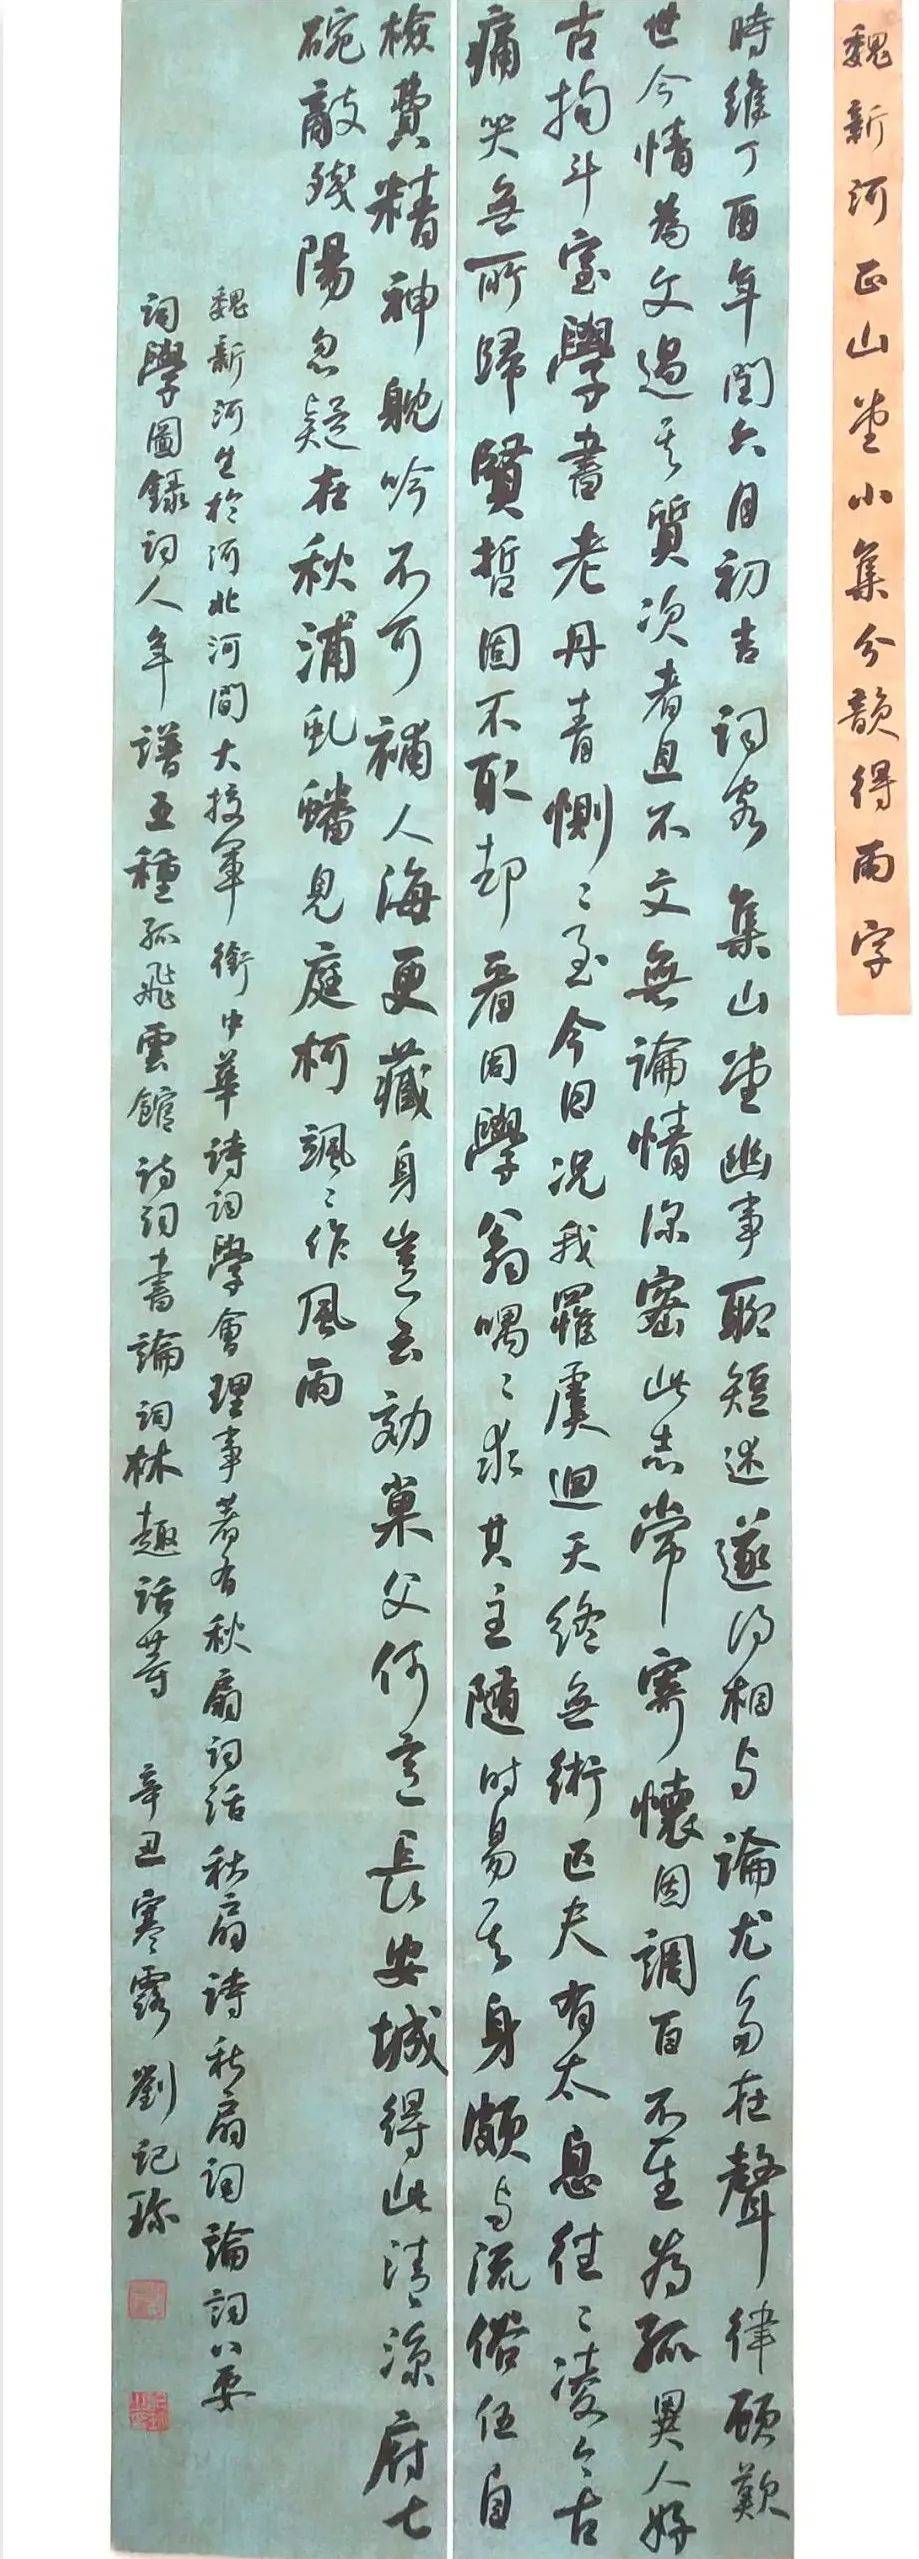 魏新河正山堂小集分韻得雨字
時維丁酉年閏六月初吉詞客集山堂幽事聊短述遂以相与論尤多在聲律顧歎
世今情為文過其質次者且不文無論情深密此志常寡懷固調百不隹為孤異人好
古拘斗室學書老丹青惻〻至今日況我罹虞迴天終無術匹夫有太息往〻凌今古
痛哭無所歸賢哲固不取却看同學翁喁〻求其主隨时易其身頗与流俗伍自
檢費精神耽吟不可補人海更藏身豈云効巢父何意長安城得此清涼府七
碗敵殘陽忽疑在秋浦虬蟠見庭柯颯〻作風雨
魏新河生於河北河間大校軍銜中華詩詞學會理事著有秋扇詞話秋扇詩秋扇詞論詞八要
詞學圖錄詞人年譜五種孤飛雲館詩詞書論詞林趣話等 辛丑寒露劉記